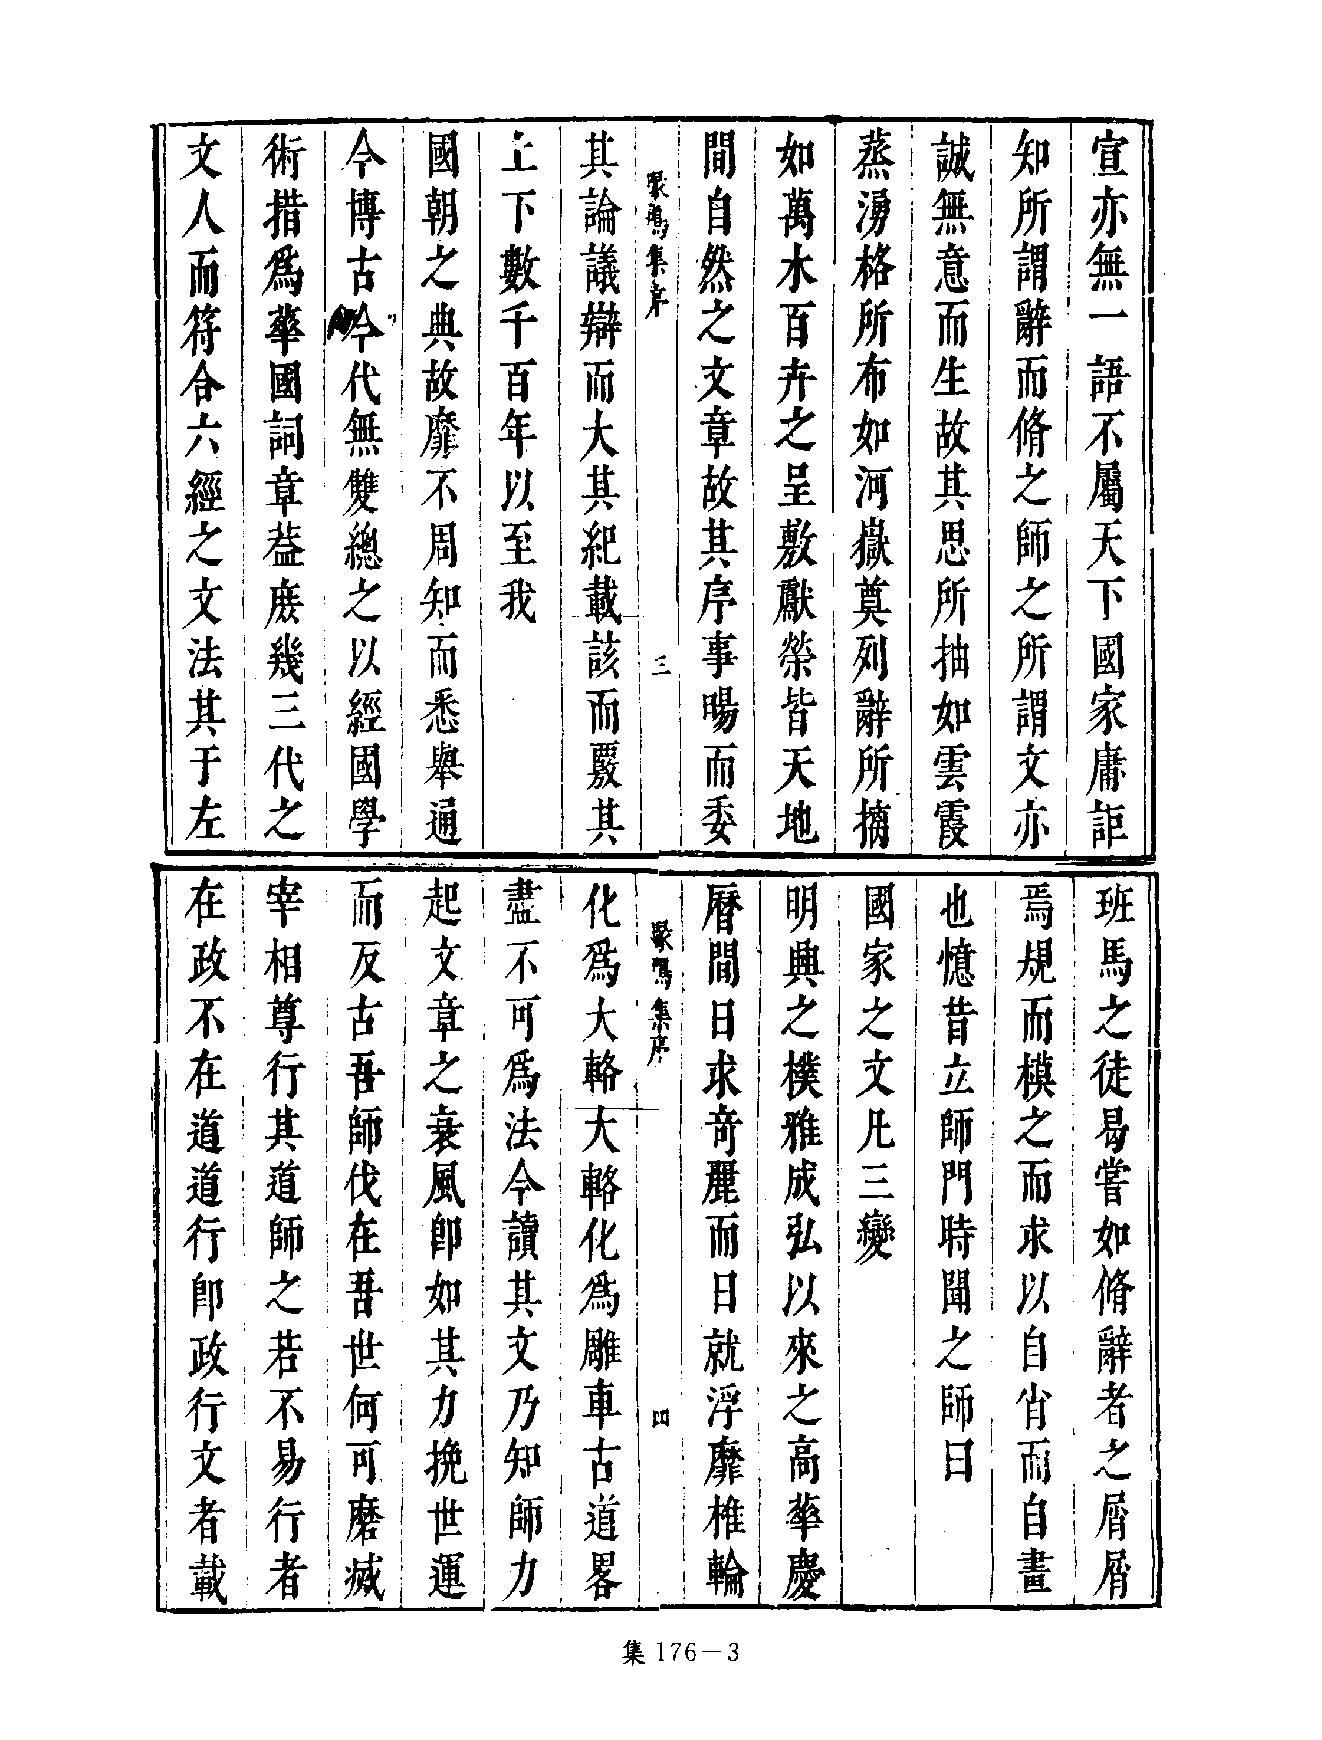 宣亦無一語不屬天下國家庸詎
知所謂辭而脩之師之所謂文亦
誠無意而生故其思所抽如雲霞
蒸湧格所布如河嶽奠列辭所摛
如萬水百卉之呈敷獻榮皆天地
間自然之文章故其序事暘而委
集序
三
其論議辯而大其紀載該而覈其
上下數千百年以至我
國朝之典故靡不周知而悉舉通
今博古今代無雙總之以經國學
術措爲華國詞章葢庶幾三代之
文人而符合六經之文法其于左
班馬之徒曷嘗如脩辭者之屑屑
焉規而模之而求以自省而自畫
也憶昔立師門時聞之師曰
國家之文凡三變
明興之樸雅成弘以來之高華慶
曆間日求竒麗而日就浮靡椎輪
集序
四
化爲大輅大輅化爲雕車古道畧
盡不可爲法今讀其文乃知師力
起文章之衰風卽如其力挽世運
而反古吾師伐在吾世何可磨滅
宰相尊行其道師之若不易行者
在政不在道道行卽政行文者載
集 176－3